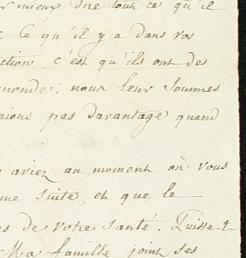 mieux dire tout ce qu'il
Ce qu'il y a dans vos
ction c'est qu'ils ont des
monde; nous leur sommes
ions pas davantage quand
aviez au moment où vous
me suite, et que le
es de votre santé. Puisse-t
Ma famille joint ses